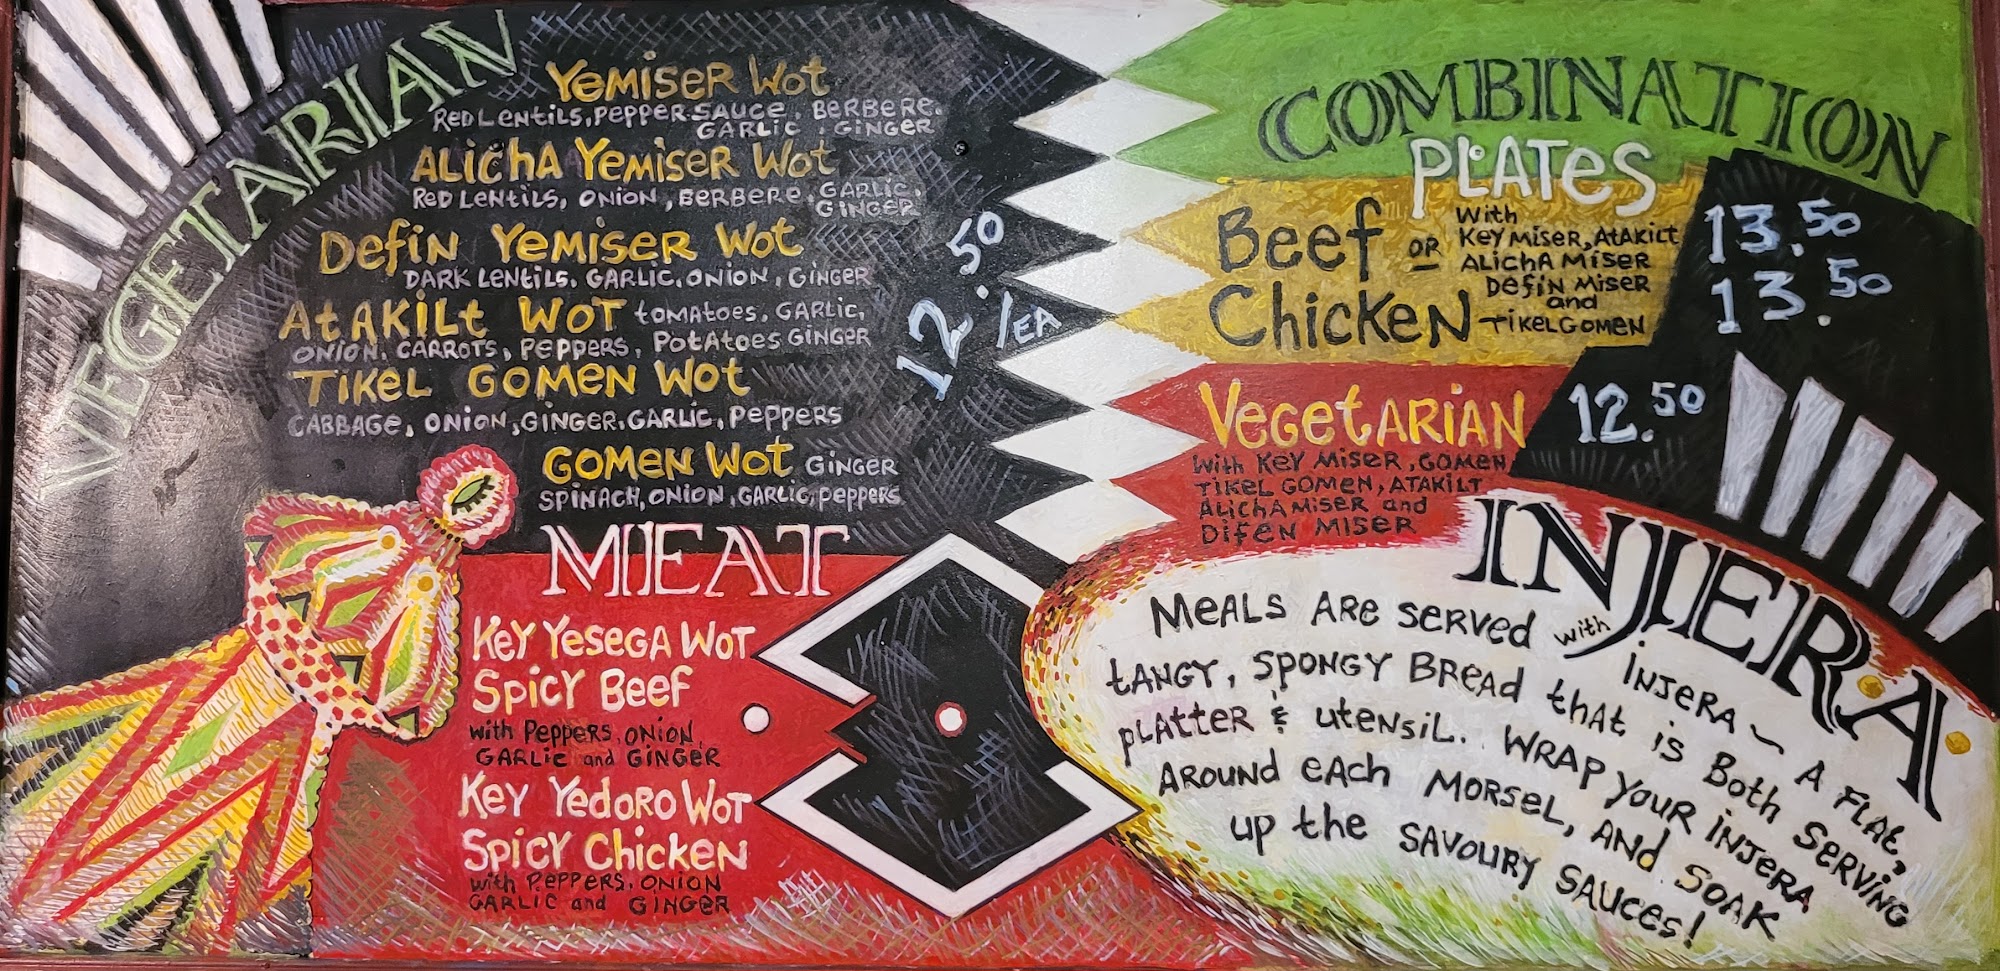 VEGETARIAN
YEMISER WOT
RED LENTILS, PEPPER SAUCE, BERBERE,
GARLIC, GINGER
ALICHA YEMISER WOT
RED LENTILS, ONION, BERBERE, GARLIC,
GINGER
DEFIN YEMISER WOT
DARK LENTILS, GARLIC, ONION, GINGER
ATAKILT WOT TOMATOES, GARLIC,
ONION, CARROTS, PEPPERS, POTATOES GINGER
TIKEL GOMEN WOT
CABBAGE, ONION, GINGER, GARLIC, PEPPERS
GOMEN WOT GINGER
SPINACH, ONION, GARLIC, PEPPERS
12.50 /EA
MEAT
KEY YESEGA WOT
SPICY BEEF
with PEPPERS, ONION
GARLIC and GINGER
KEY YEDORO WOT
SPICY CHICKEN
with PEPPERS, ONION
GARLIC and GINGER
COMBINATION
PLATES
BEEF OR
CHICKEN
With
KEY MISER, ATAKILT
ALICHA MISER
DEFIN MISER
and
TIKEL GOMEN
13.50
13.50
VEGETARIAN 12.50
With KEY MISER, GOMEN
TIKEL GOMEN, ATAKILT
ALICHA MISER and
DIFEN MISER
INJERA
MEALS ARE SERVED with INJERA ~ A FLAT,
TANGY, SPONGY BREAD that is BOTH SERVING
PLATTER & UTENSIL. WRAP YOUR INJERA
AROUND EACH MORSEL, AND SOAK
UP the SAVOURY SAUCES!